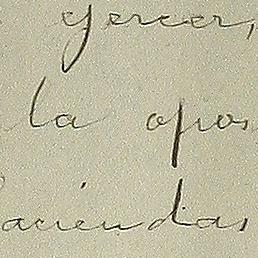 ejercer,
la opos
aciéndas